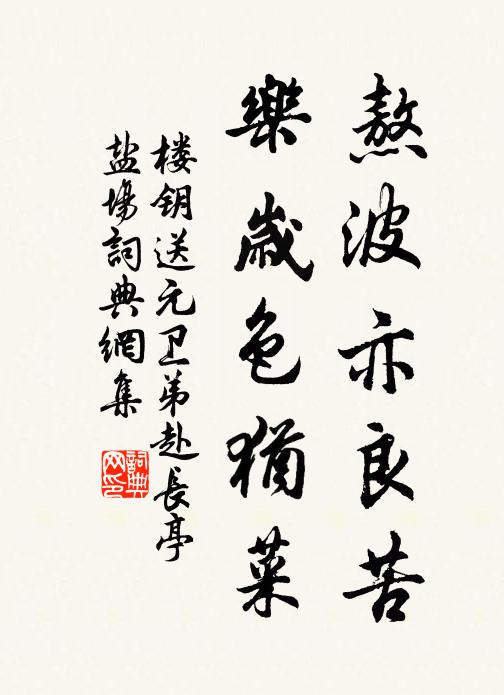 熬波亦良苦
樂歲色猶菜
楼钥送元卫弟赴長亭
盐場詞典網集
詞典网印